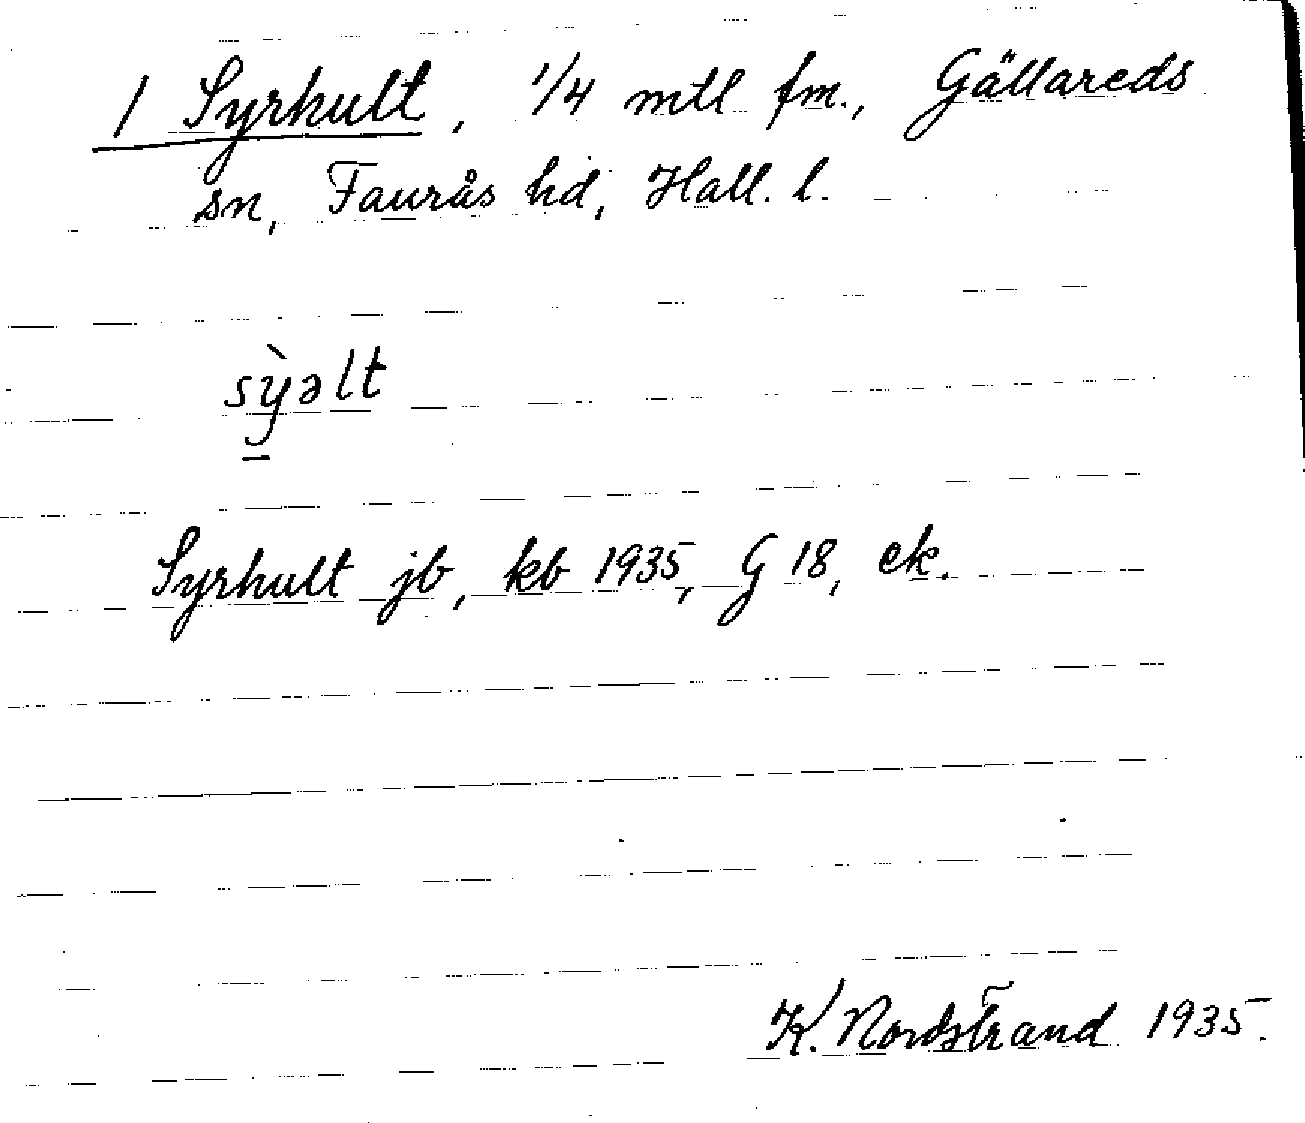 1 Syrhult, 1/4 mtl fm., Gällareds
sn, Faurås hd, Hall. l.
sỳ̠əlt
Syrhult jb, kb 1935, G 18, ek.
K. Nordstrand 1935.